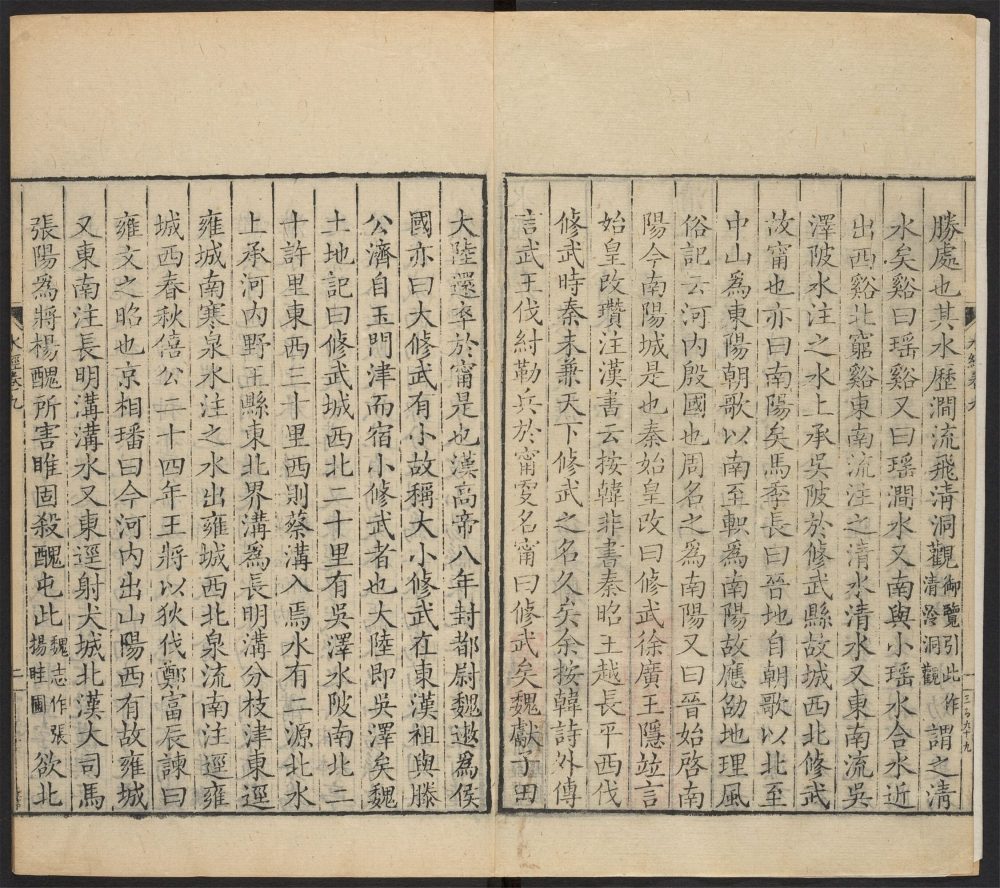 勝處也其水歷澗流飛清洞觀御覽引此作清泠洞觀謂之清
水矣谿曰瑤谿又曰瑤澗水又南與小瑤水合水近
出西谿北窮谿東南流注之清水清水又東南流吳
澤陂水注之水上承吳陂於修武縣故城西北修武
故甯也亦曰南陽矣馬季長曰晉地自朝歌以北至
中山為東陽朝歌以南至軹為南陽故應劭地理風
俗記云河內殷國也周名之為南陽又曰晉始啓南
陽今南陽城是也秦始皇改曰修武徐廣王隱竝言
始皇改瓚注漢書云按韓非書秦昭王越長平西伐
修武時秦未兼天下修武之名久矣余按韓詩外傳
言武王伐紂勒兵於甯更名甯曰修武矣魏獻子田
水經卷九
大陸還卒於甯是也漢高帝八年封都尉魏遫為侯
國亦曰大修武有小故稱大小修武在東漢祖與滕
公濟自玉門津而宿小修武者也大陸即吳澤矣魏
土地記曰修武城西北二十里有吳澤水陂南北二
十許里東西三十里西則蔡溝入焉水有二源北水
上承河內野王縣東北界溝為長明溝分枝津東逕
雍城南寒泉水注之水出雍城西北泉流南注逕雍
城西春秋僖公二十四年王將以狄伐鄭富辰諫曰
雍文之昭也京相璠曰今河內出山陽西有故雍城
又東南注長明溝溝水又東逕射犬城北漢大司馬
張陽為將楊醜所害眭固殺醜屯此魏志作張揚眭固欲北
水經卷九
二